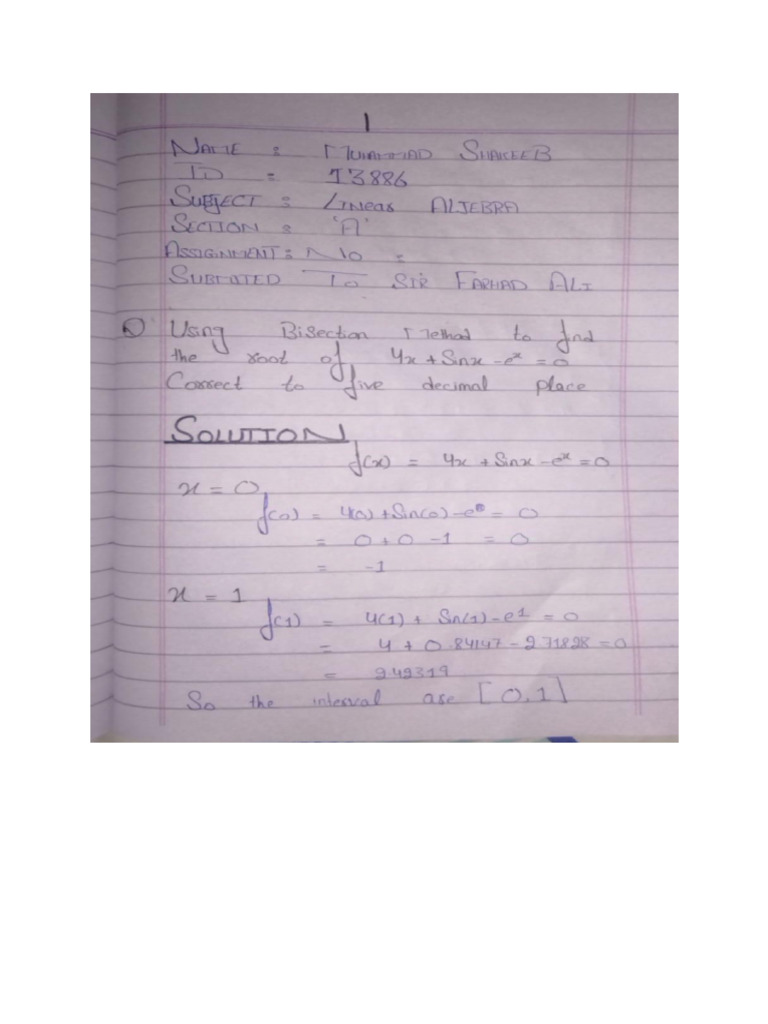 1
NAME : MUHAMMAD SHAKEEB
ID = 13886
SUBJECT : LINEAR ALJEBRA
SECTION : 'A'
ASSIGNMENT : NO =
SUBMITED TO SIR FARHAD ALI
Using Bisection Method to find
the root of 4x + Sinx - eˣ = 0
Correct to five decimal place
SOLUTION
f(x) = 4x + Sinx - eˣ = 0
x = 0
f(0) = 4(0) + Sin(0) - e⁰ = 0
= 0 + 0 - 1 = 0
= -1
x = 1
f(1) = 4(1) + Sin(1) - e¹ = 0
= 4 + 0.84147 - 2.71828 = 0
= 2.42319
So the interval are [0,1]